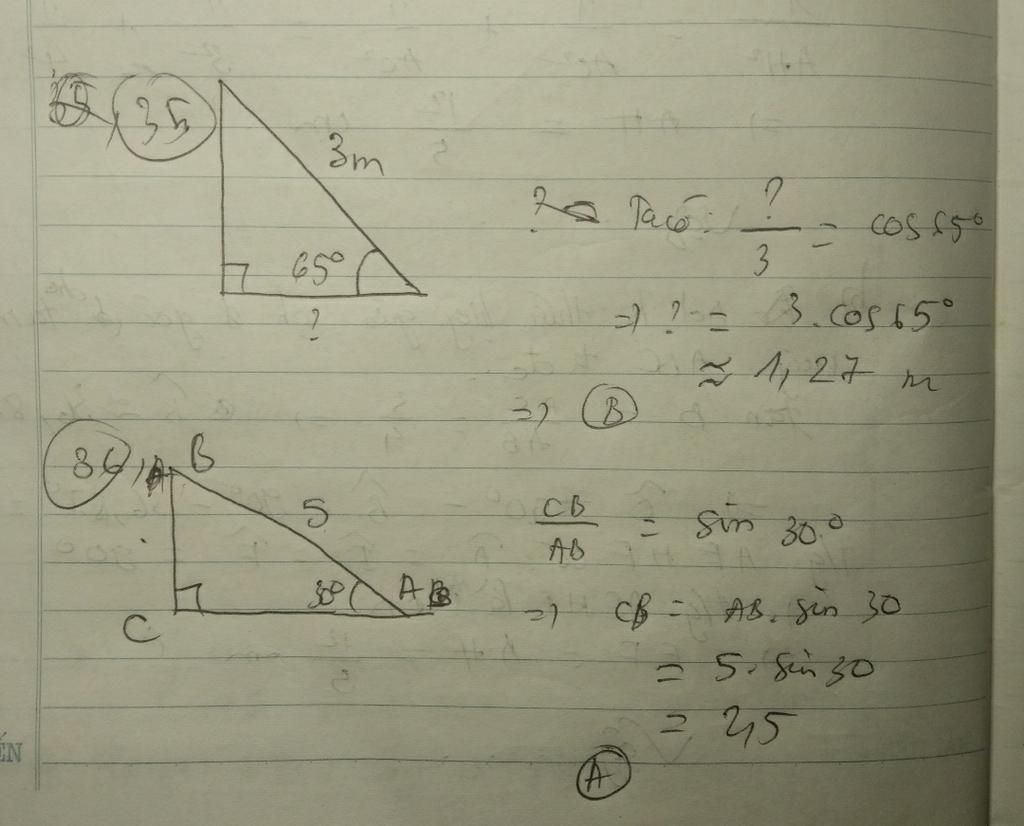 35
3m
65°
?
Ta có: ?/3 = cos 65°
=> ? = 3.cos 65°
≈ 1,27 m
=> B
36,
B
5
30°
A
C
CB/AB = sin 30°
=> CB = AB. sin 30
= 5. sin 30
= 2,5
A
ẾN